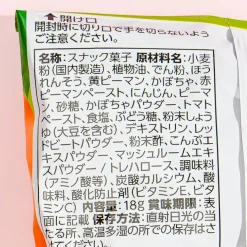 ↑開け口
開封時に切り口で手を切らないよう
ご注意ください。
名称:スナック菓子 原材料名:小麦
粉(国内製造)、植物油、でん粉、ほう
れんそう、黄ピーマン、かぼちゃ、赤
ピーマンペースト、にんじん、ピーマ
ン、砂糖、かぼちゃパウダー、トマト
ペースト、食塩、ぶどう糖、粉末しょう
ゆ(大豆を含む)、デキストリン、レッ
ドビートパウダー、粉末酢、こんぶエ
キスパウダー、マッシュルームエキス
パウダー/トレハロース、調味料
(アミノ酸等)、炭酸カルシウム、酸
味料、酸化防止剤(ビタミンE、ビタ
ミンC) 内容量:18g 賞味期限:表
面に記載 保存方法:直射日光の当
たる所、高温多湿の所での保存は
さけてください。